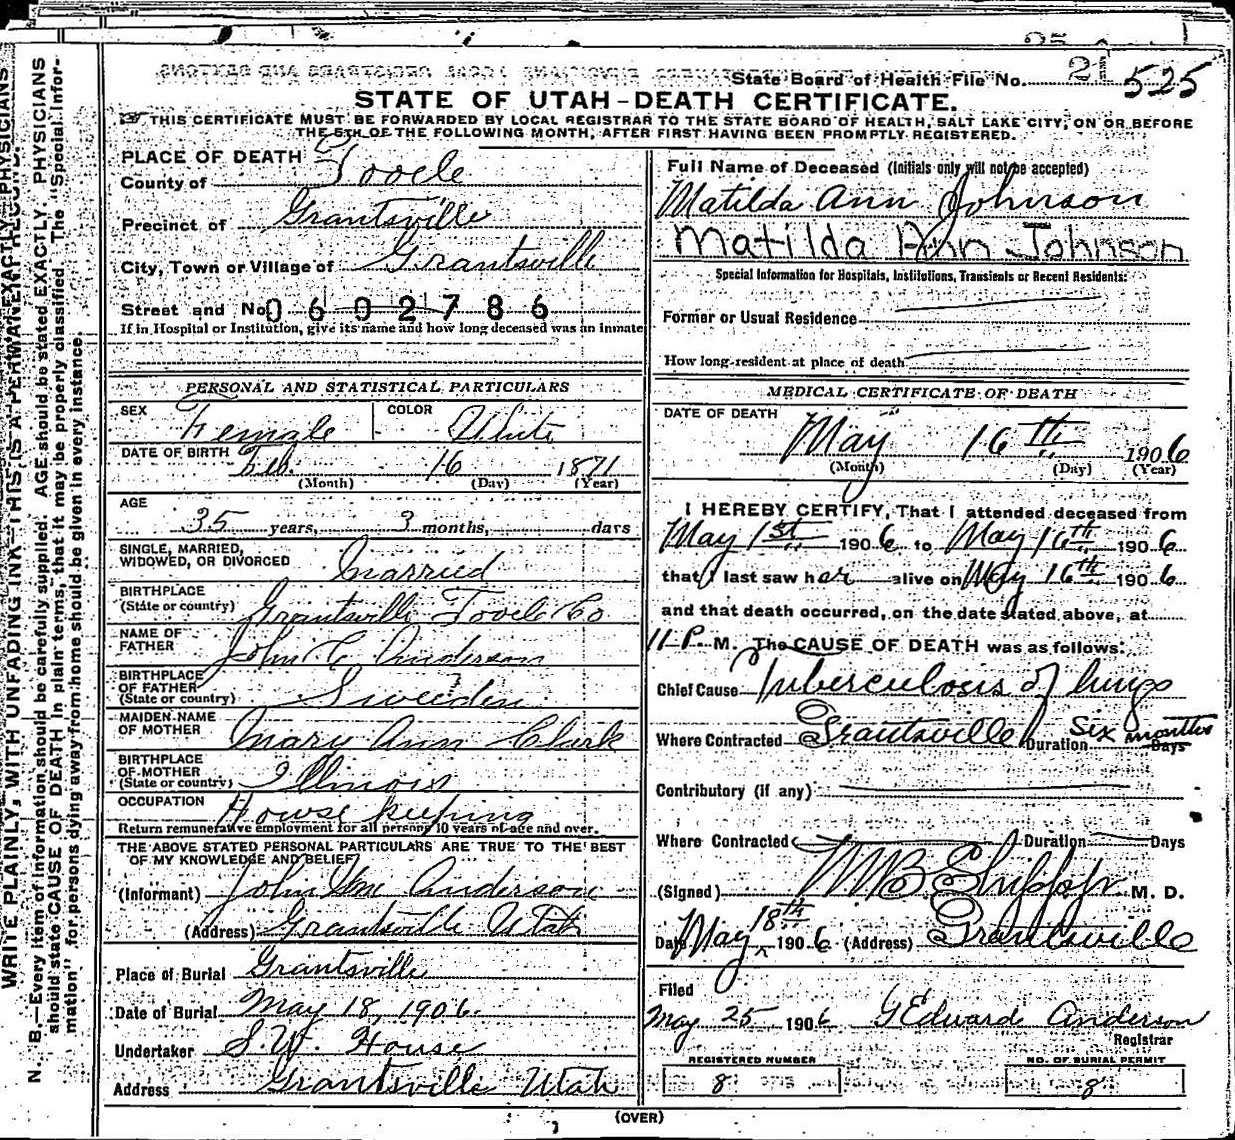 State Board of Health File No. 21 525
STATE OF UTAH-DEATH CERTIFICATE.
THIS CERTIFICATE MUST BE FORWARDED BY LOCAL REGISTRAR TO THE STATE BOARD OF HEALTH, SALT LAKE CITY, ON OR BEFORE
THE 5TH OF THE FOLLOWING MONTH, AFTER FIRST HAVING BEEN PROMPTLY REGISTERED.
PLACE OF DEATH
County of Tooele
Precinct of Grantsville
City, Town or Village of Grantsville
Street and No. 0602786
If in Hospital or Institution, give its name and how long deceased was an inmate
PERSONAL AND STATISTICAL PARTICULARS
SEX Female COLOR White
DATE OF BIRTH Feb 16 1871
(Month) (Day) (Year)
AGE
35 years, 3 months, days
SINGLE, MARRIED,
WIDOWED, OR DIVORCED Married
BIRTHPLACE
(State or country) Grantsville Tooele Co
NAME OF
FATHER John C Anderson
BIRTHPLACE
OF FATHER
(State or country) Sweeden
MAIDEN NAME
OF MOTHER Mary Ann Clark
BIRTHPLACE
OF MOTHER
(State or country) Illinois
OCCUPATION House keeping
Return remunerative employment for all persons 10 years of age and over.
THE ABOVE STATED PERSONAL PARTICULARS ARE TRUE TO THE BEST
OF MY KNOWLEDGE AND BELIEF
(Informant) John Wm Anderson
(Address) Grantsville Utah
Place of Burial Grantsville
Date of Burial May 18, 1906.
Undertaker S.W. House
Address Grantsville Utah
Full Name of Deceased (Initials only will not be accepted)
Matilda Ann Johnson
Matilda Ann Johnson
Special Information for Hospitals, Institutions, Transients or Recent Residents:
Former or Usual Residence
How long resident at place of death
MEDICAL CERTIFICATE OF DEATH
DATE OF DEATH
May 16th 1906
(Month) (Day) (Year)
I HEREBY CERTIFY, That I attended deceased from
May 1st 1906 to May 16th 1906
that I last saw her alive on May 16th 1906
and that death occurred, on the date stated above, at
11 P. M. The CAUSE OF DEATH was as follows:
Chief Cause Tuberculosis of lungs
Where Contracted Grantsville Duration Six months Days
Contributory (if any)
Where Contracted Duration Days
(Signed) M B Shipp jr M. D.
Date May 18th 1906 (Address) Grantsville
Filed
May 25 1906 G Edward Anderson
Registrar
REGISTERED NUMBER NO. OF BURIAL PERMIT
8 8
(OVER)
WRITE PLAINLY, WITH UNFADING INK—THIS IS A PERMANENT RECORD.
N. B.—Every item of information should be carefully supplied. AGE should be stated EXACTLY. PHYSICIANS
should state CAUSE OF DEATH in plain terms, that it may be properly classified. The "Special Infor-
mation" for persons dying away from home should be given in every instance.